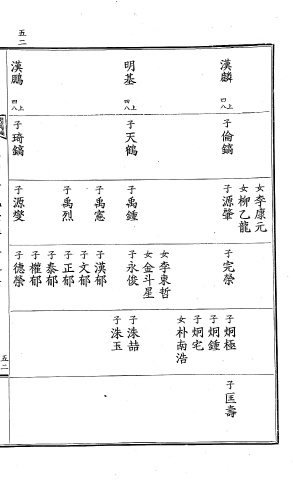 五二
漢麟 四八上
明基 四八上
漢鵬 四八上
子 倫鎬
子 天鶴
子 琦鎬
女 李康元
女 柳乙龍
子 源肇
子 禹鍾
子 禹憲
子 禹烈
子 源燮
子 完榮
女 李東哲
女 金斗星
子 永俊
子 漢郁
子 文郁
子 正郁
子 泰郁
子 權郁
子 德榮
子 炯極
子 炯鍾
子 炯宅
女 朴南浩
子 洙喆
子 洙玉
子 匡壽
五二